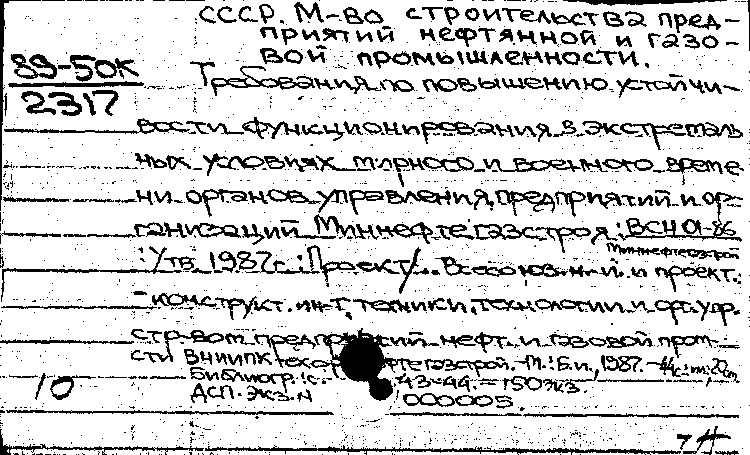 СССР. М-во строительства пред-
приятий нефтянной и газо-
вой промышленности.
89-50К
2317
Требования по повышению устойчи-
вости функционирования в экстремаль
ных условиях мирного и военного време
ни органов управления, предприятий и ор-
ганизаций Миннефтегазстроя: ВСН 01-86
Миннефтегазстрой
: Утв 1987г.: Проект/.. Всесоюз. н.-и. и проект.
-конструкт. ин-т. техники, технологии и орг. упр.
стр-вом предприятий нефт. и газовой пром-
сти ВНИИПК нефтегазстрой. - М.: Б.и., 1987. - 44с.: ил; 20см
Библиогр.: с. 43-44. = 150экз.
ДСП. Экз. N 000005.
10